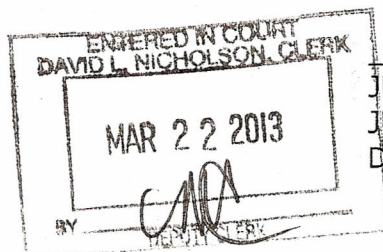 ENTERED IN COURT
DAVID L. NICHOLSON, CLERK
MAR 22 2013
BY
DEPUTY CLERK
J
J
D